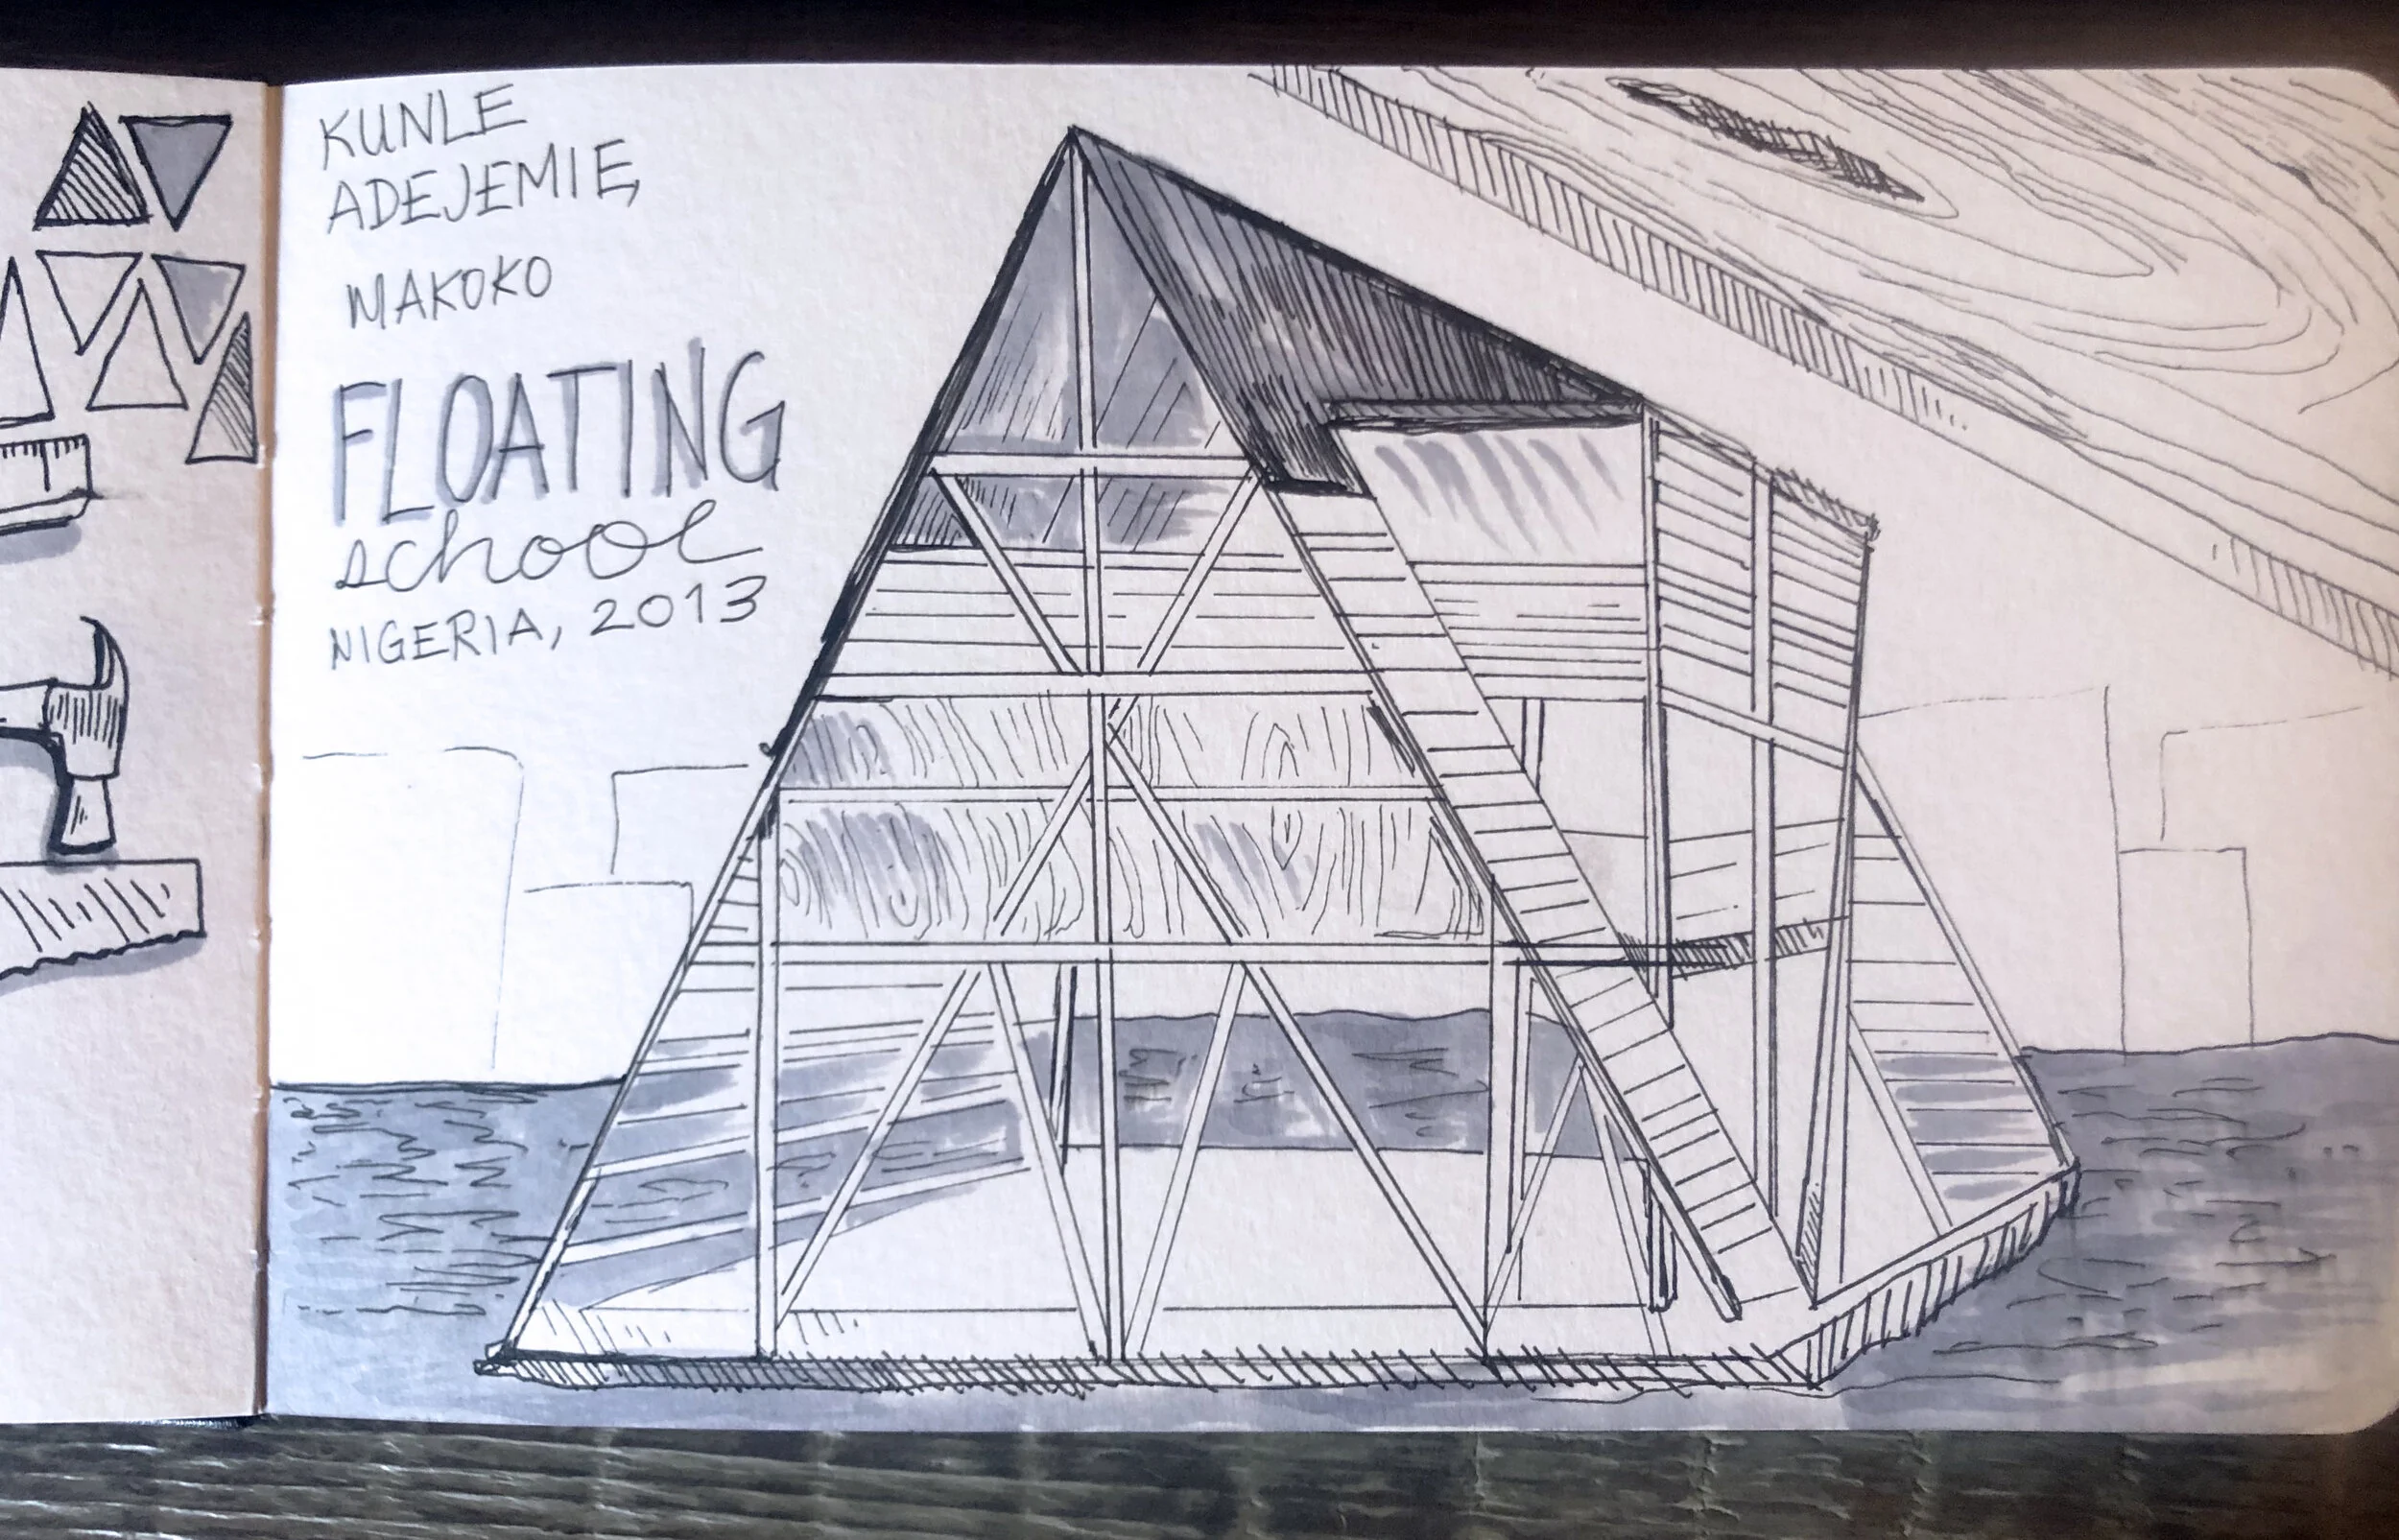 KUNLE
ADEJEMIĘ
MAKOKO
FLOATING
school
NIGERIA, 2013